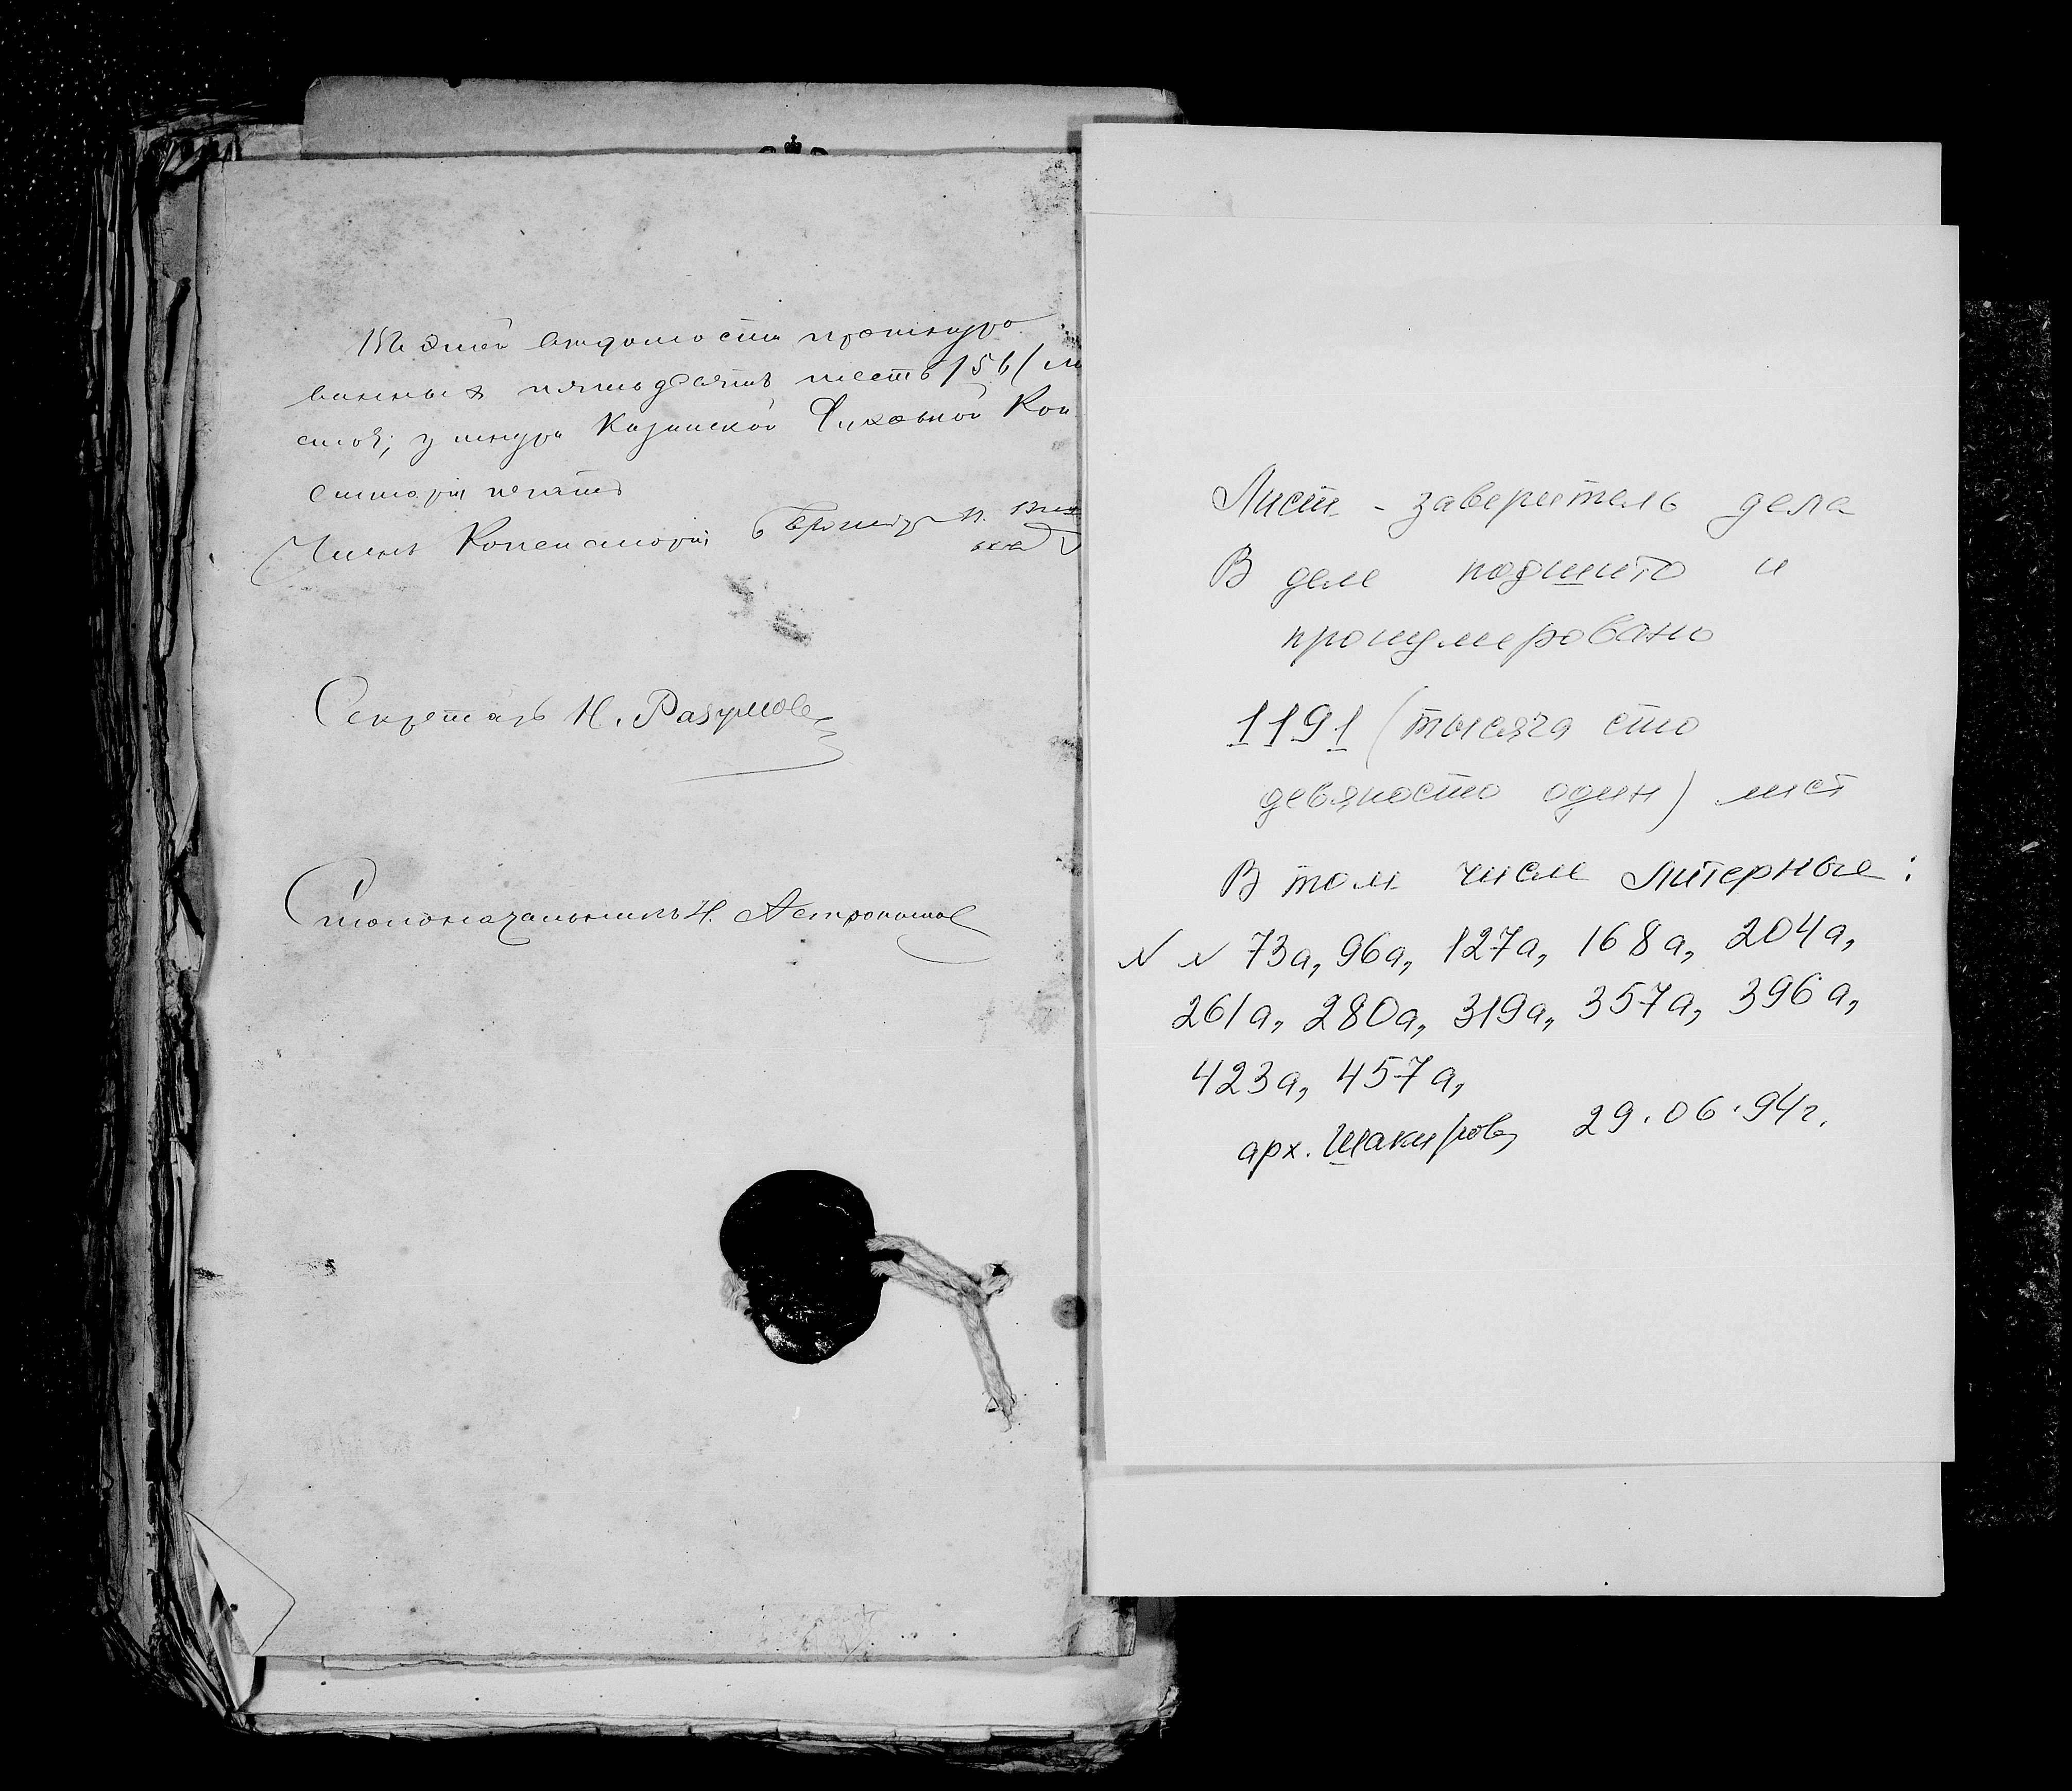 Въ этой ведомости прошнуро
ванныхъ пятьдесятъ шесть /56/ ли
стов; у шнура Казанской Духовной Кон
систоріи печать
Членъ Консисторіи
Секретарь Н. Разумов
Столоначальникъ Н. Астрономов
Лист - заверитель дела
В деле подшито и
пронумеровано
1191 (тысяча сто
девяносто один) лист
В том числе литерные:
N N 73а, 96а, 127а, 168а, 204а,
261а, 280а, 319а, 357а, 396а,
423а, 457а,
арх. Шакирова 29.06.94г.